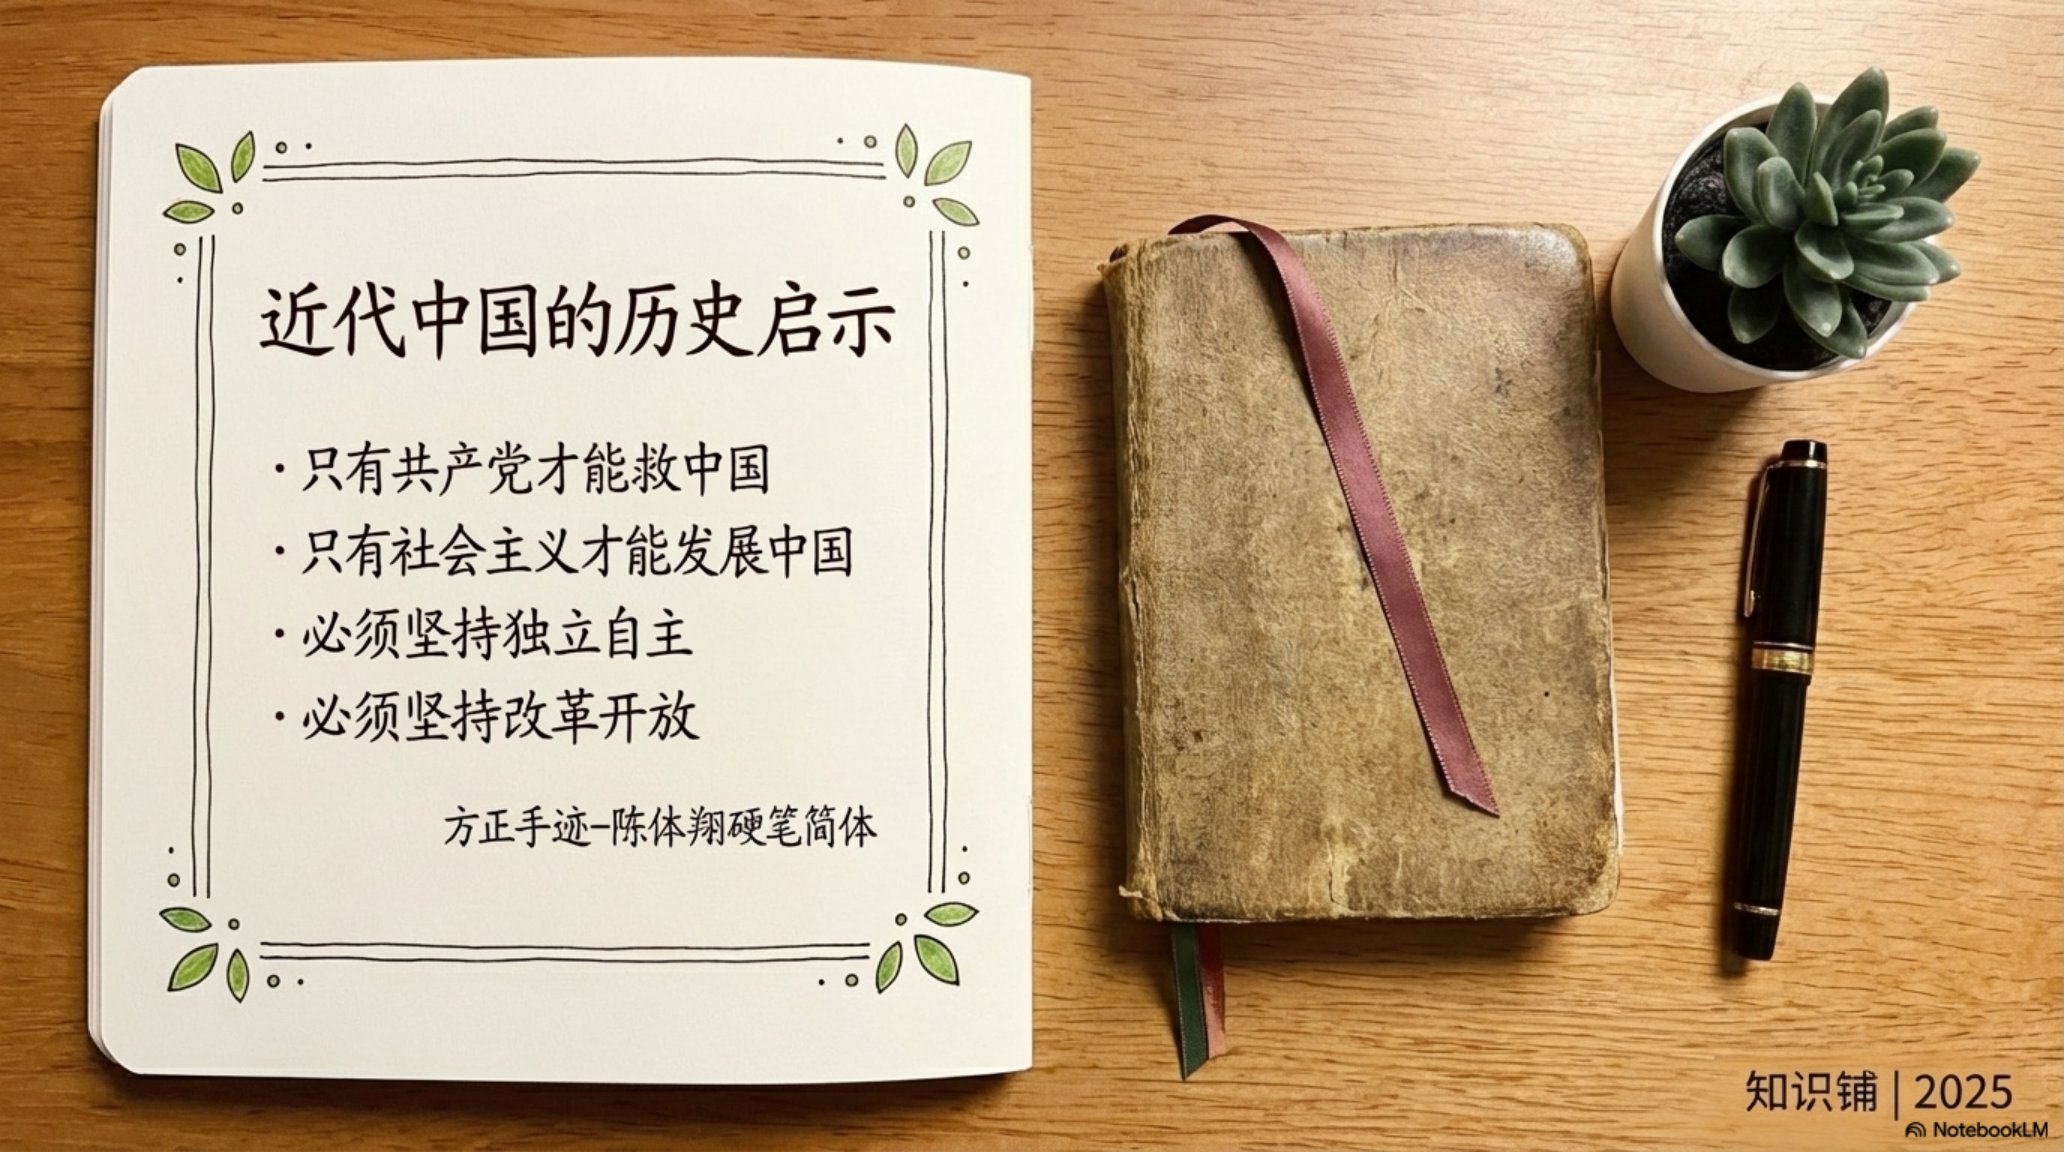 近代中国的历史启示
· 只有共产党才能救中国
· 只有社会主义才能发展中国
· 必须坚持独立自主
· 必须坚持改革开放
方正手迹-陈体翔硬笔简体
知识铺 | 2025
NotebookLM